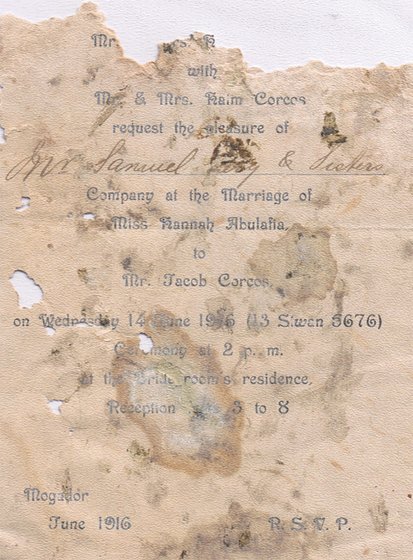 Mr.
with
Mr. & Mrs. Haim Corcos
request the pleasure of
Mr Samuel & Sisters
Company at the Marriage of
Miss Hannah Abulafia,
to
Mr. Jacob Corcos,
on Wednesday 14 June 1916 (13 Siwan 5676)
Ceremony at 2 p. m.
at the Bride room's residence,
Reception 3 to 8
Mogador
June 1916
R. S. V. P.